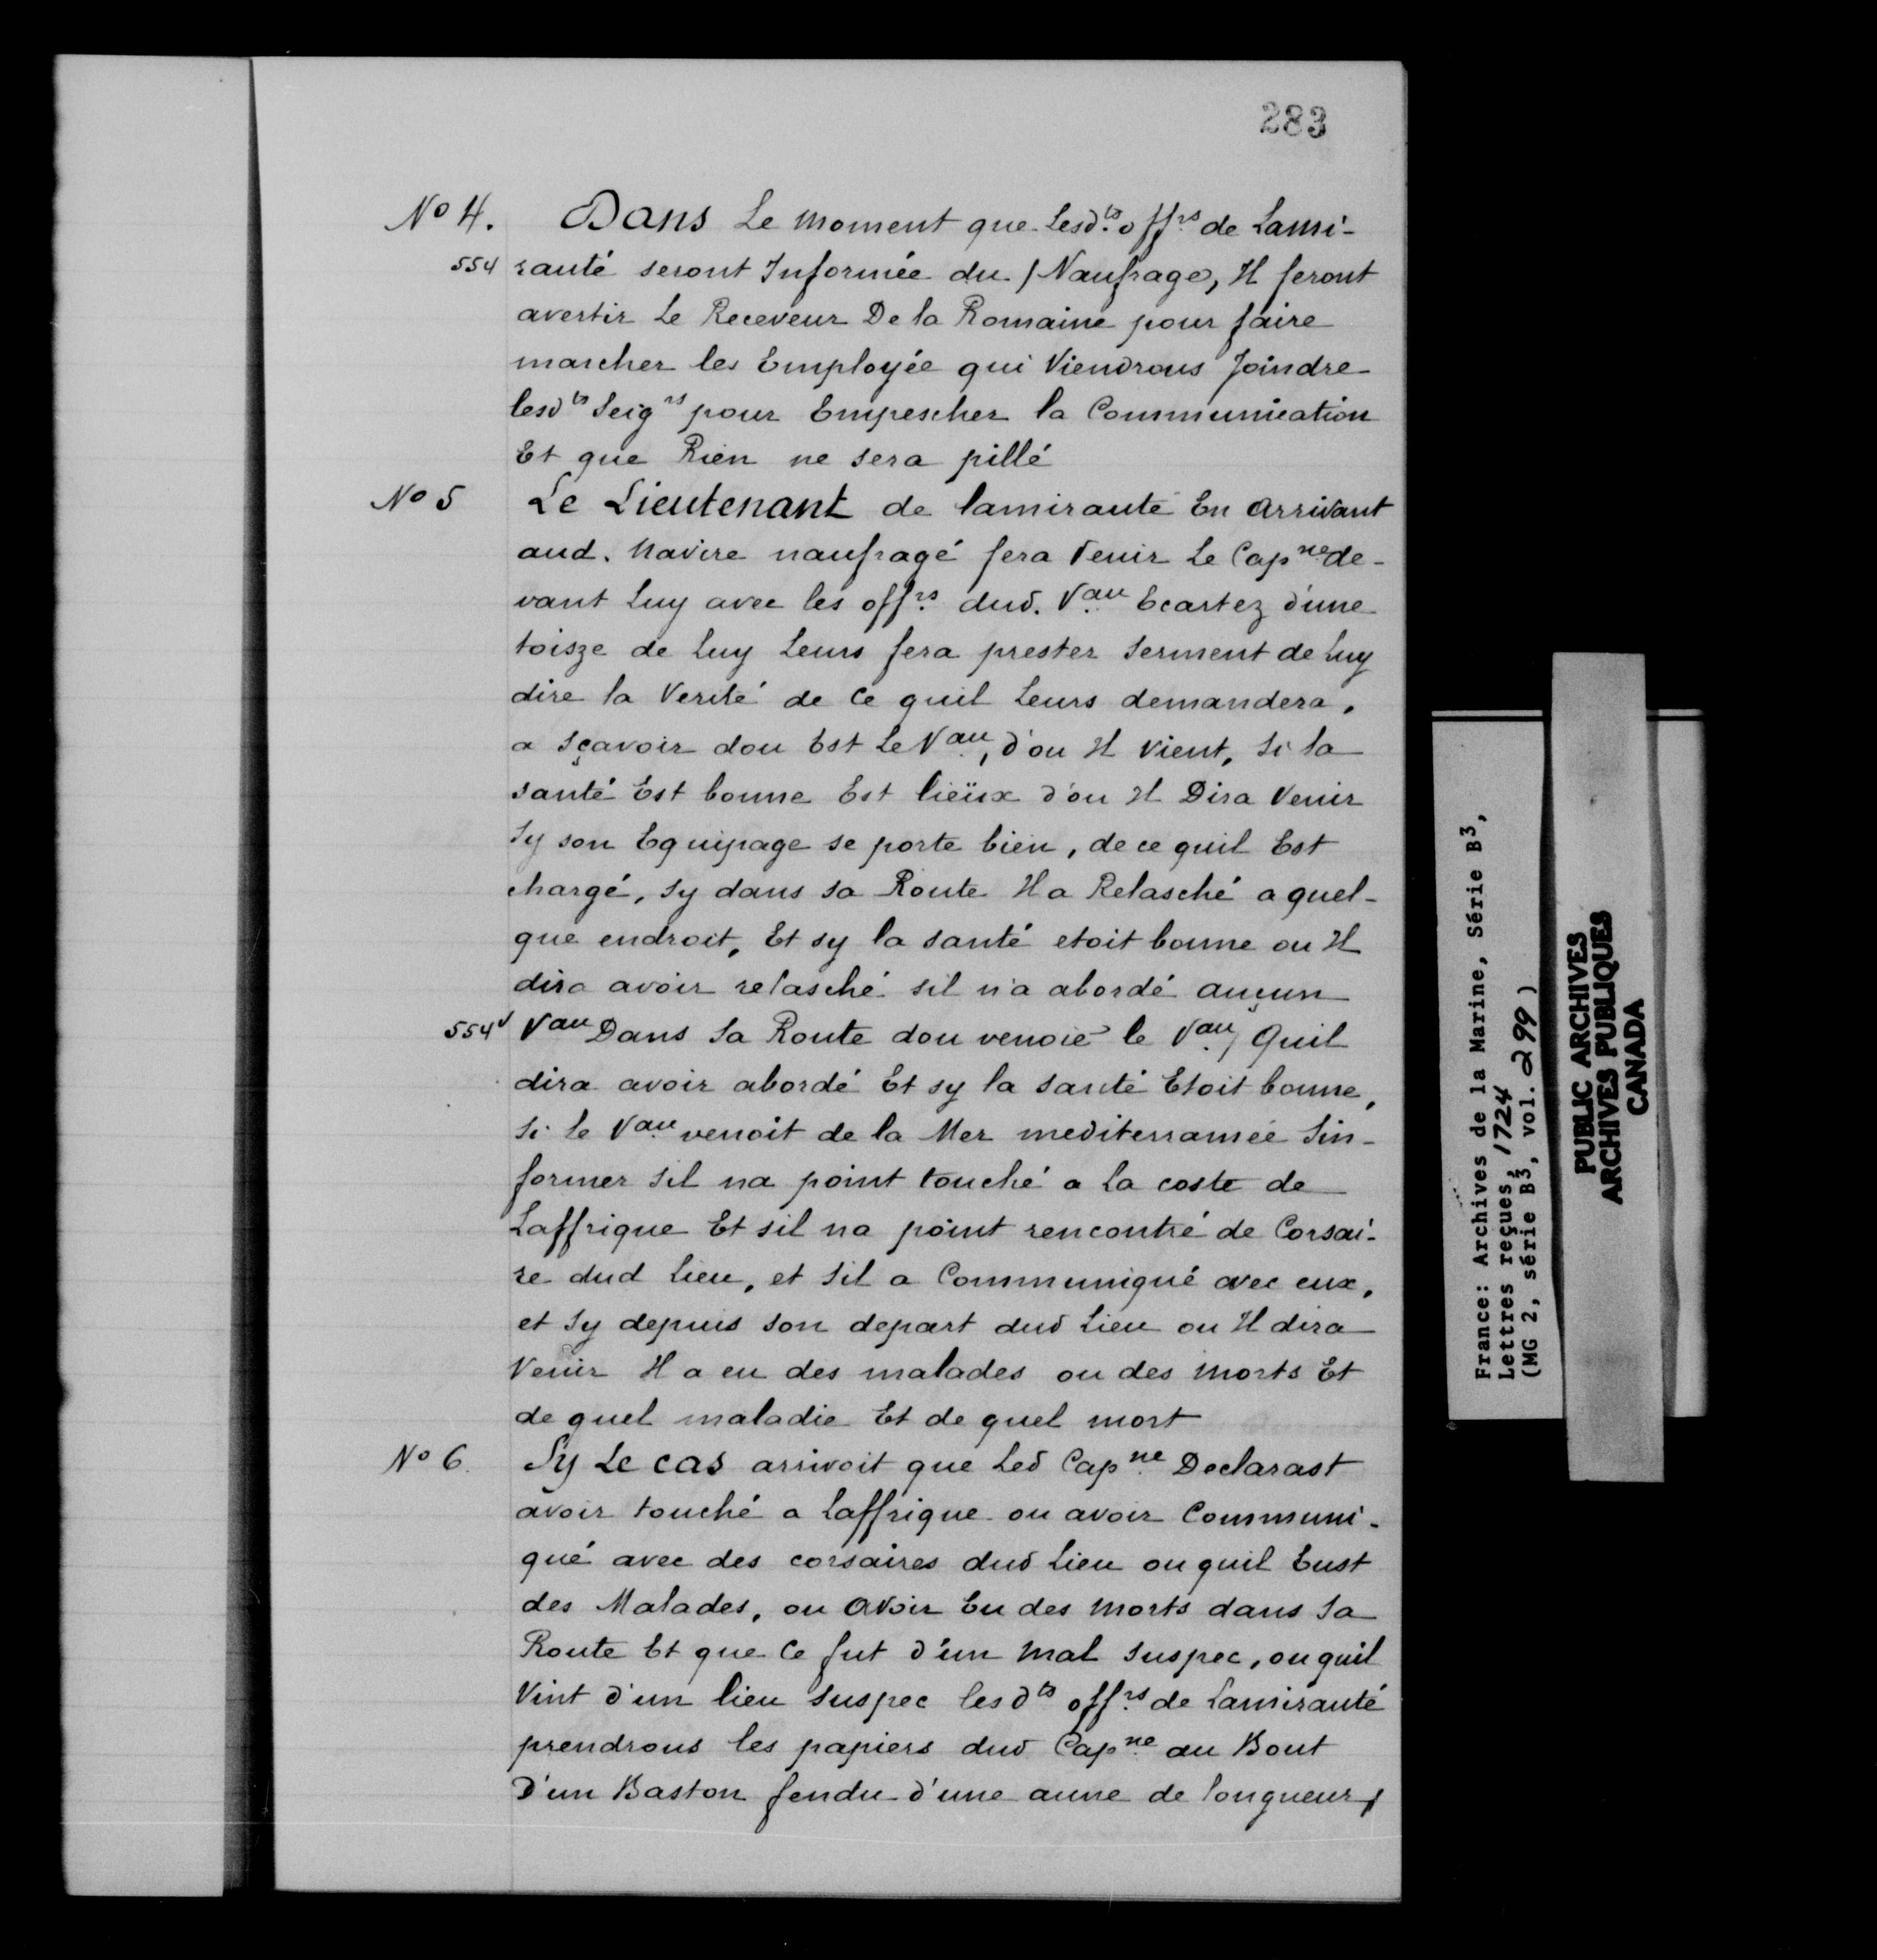 283
No 4. Dans Le moment que Lesd.ts offrs. de Lami-
554 rauté seront Informée du / Naufrage, Il feront
avertir Le Receveur De la Romaine pour faire
marcher les Employée qui Viendrons Joindre
lesdts Seigrs pour Empescher la Communication
Et que Rien ne sera pillé
No 5 Le Lieutenant de lamirauté En arrivant
aud. Navire naufragé fera Venir Le Capne. de-
vant Luy avec les offrs. dud. Vau. Ecartez d'une
toisze de Luy Leurs fera prester Serment de Luy
dire la Verité de Ce quil Leurs demandera,
a sçavoir dou Est Le Vau., d'ou Il Vient, Si la
santé Est bonne Est lieüx d'ou Il Dira Venir
Sy son Equipage se porte bien, de ce quil Est
chargé, Sy dans sa Route Il a Relasché a quel-
que endroit, Et sy la santé etoit bonne ou Il
dira avoir relasché sil n'a abordé auçun
554v Vau Dans Sa Route dou venoie le Vau. / Quil
dira avoir abordé Et sy la santé Etoit bonne,
Si le Vau. venoit de la Mer mediterramée Sin-
former Sil na point touché a La coste de
Laffrique Et sil na point rencontré de Corsai-
re dud Lieu, et Sil a Communiqué avec eux,
et Sy depuis son depart dud Lieu ou Il dira
Venir Il a eu des malades ou des morts Et
de quel maladie Et de quel mort
No 6. Sy Le cas arrivoit que Led Capne. Declarast
avoir touché a Laffrique ou avoir Communi-
qué avec des corsaires dud Lieu ou quil Eust
des Malades, ou avoir Eu des morts dans Sa
Route Et que Ce fut d'un mal Suspec, ou quil
Vint d'un lieu Suspec les dts offrs. de Lamirauté
prendrons les papiers dud Capne. au Bout
D'un Baston fendu d'une aune de longueur,
France: Archives de la Marine, Série B3,
Lettres reçues, 1724
(MG 2, série B3, vol. 299)
PUBLIC ARCHIVES
ARCHIVES PUBLIQUES
CANADA